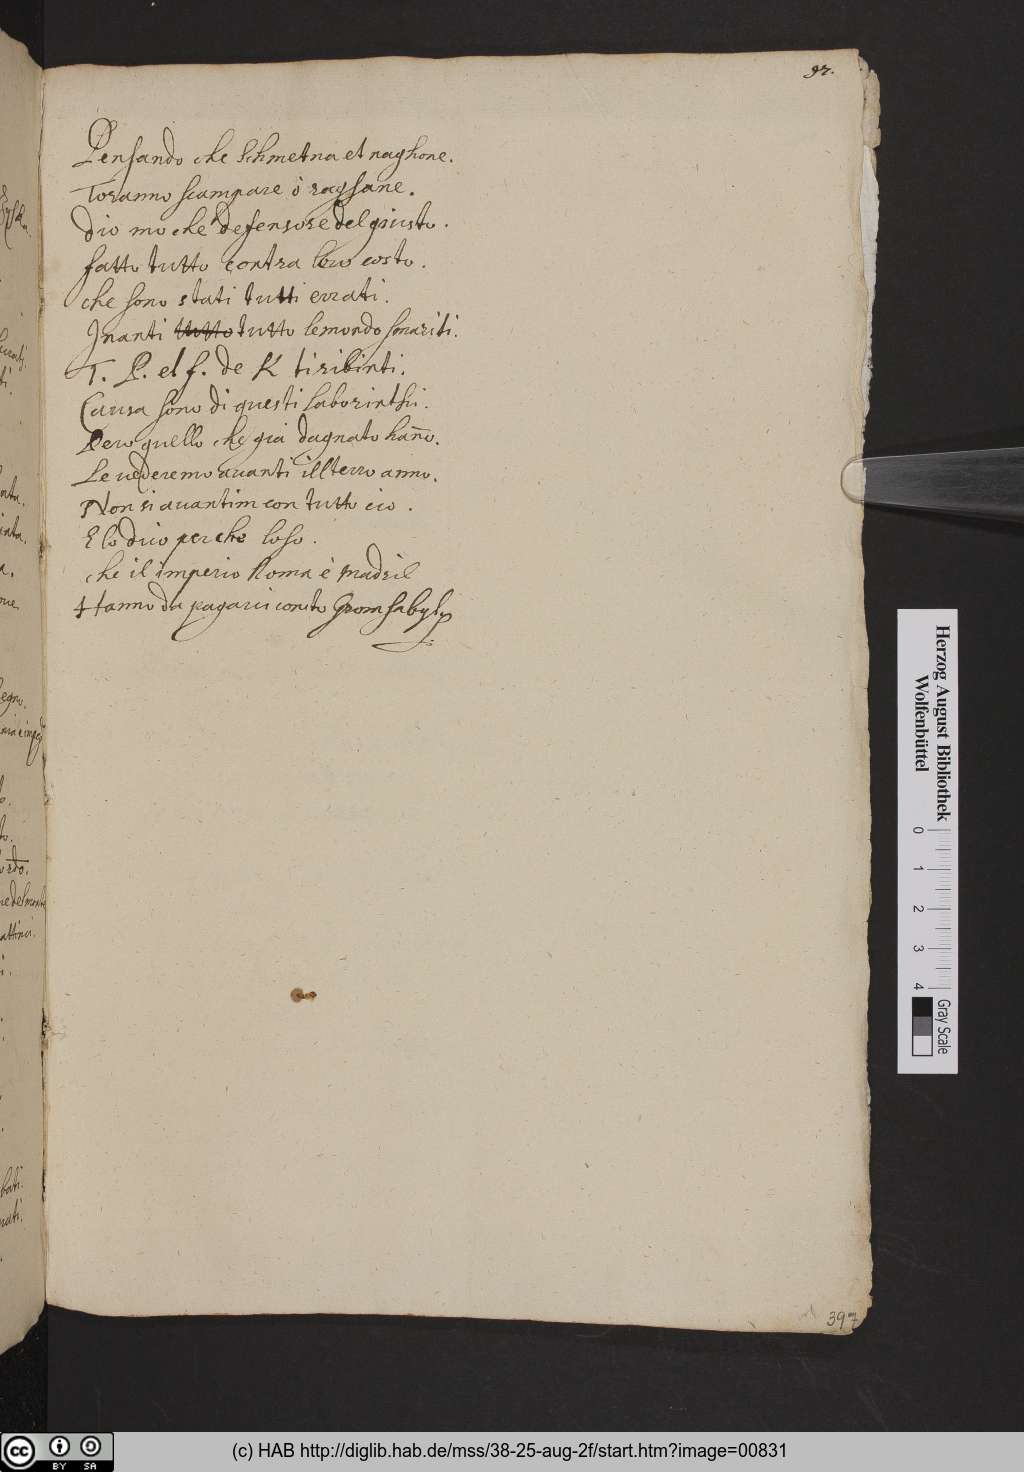 97.
Pensando che Schmetna et naghone.
Toranno scampare ò raysane.
dio mo che defensore del giusto.
fatto tutto contra loro costo.
che sono stati tutti errati.
Inanti tutto tutto lemondo smariti.
T. P. et f. de K tiribinti.
Causa sono di questi laborinthi.
Pero quello che gia dagnato hanno.
Le vederemo avanti ill terzo anno.
Non si avantim con tutto cio.
E lo dico perche loso.
che il imperio Roma è Madril
Hanno da pagarci conto
397
Herzog August Bibliothek
Wolfenbüttel
0 1 2 3 4
Gray Scale
cc BY SA
(c) HAB http://diglib.hab.de/mss/38-25-aug-2f/start.htm?image=00831